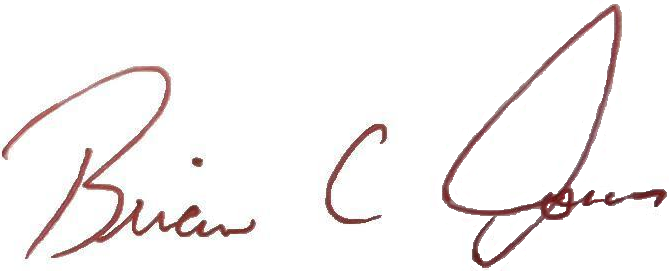 Brian C Jones